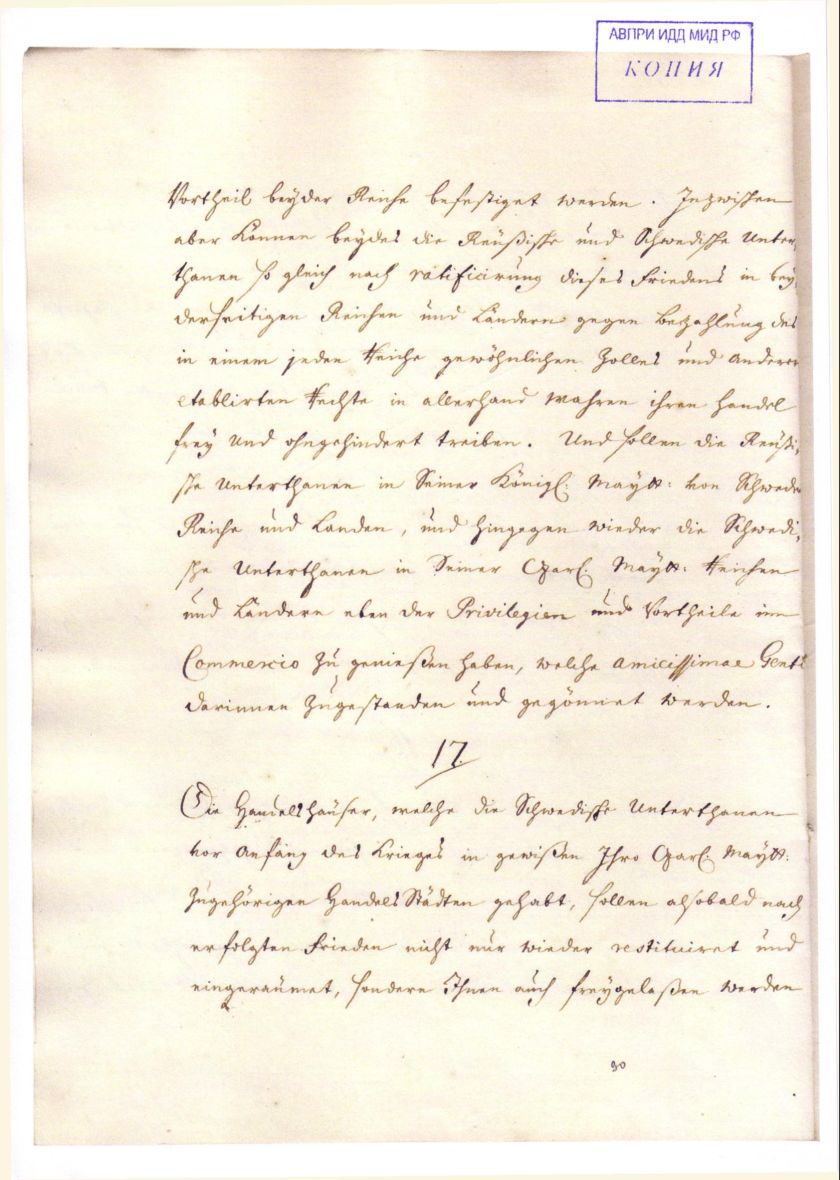 АВПРИ ИДД МИД РФ
КОПИЯ
Vortheil beyder Reiche befestiget werden. Inzwischen
aber können beydes die Reüßische und Schwedische Unter,
thanen so gleich nach ratificirung dieses Friedens in bey,
derseitigen Reichen und Ländern gegen Bezahlung des
in einem jeden Reiche gewöhnlichen Zolles und anderer
etablirten Rechte in allerhand wahren ihren Handel
frey und ohngehindert treiben. Und sollen die Reüßi,
sche Unterthanen in Seiner Königl: Maytt: von Schweden
Reiche und Landen, und hingegen wieder die Schwedi,
sche Unterthanen in Seiner Czarl: Maytt: Reichen
und Ländern eben der Privilegien und Vortheile im
Commercio zu genießen haben, welche amicissimae Genti
darinnen zugestanden und gegönnet werden.
17.
Die Handelshäuser, welche die Schwedische Unterthanen
vor Anfang des Krieges in gewißen Ihro Czarl: Maytt:
zugehörigen Handels Städten gehabt, sollen alsobald nach
erfolgten Frieden nicht nur wieder restituiret und
eingeraümet, sondern Ihnen auch freygelaßen werden